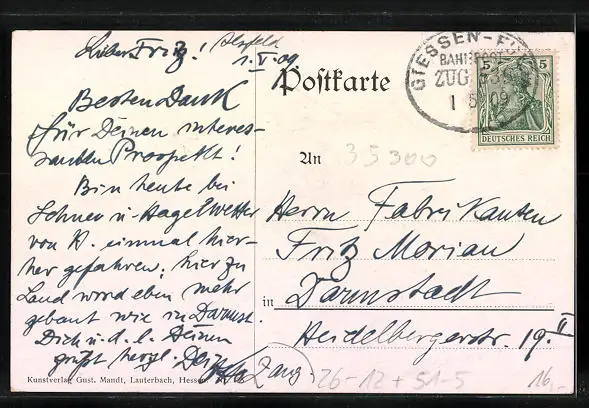 Lieber Fritz! Alsfeld
1.V.09
Besten Dank
für Deinen interes-
santen Prospekt!
Bin heute bei
Schnee u. Hagelwetter
von A. einmal hier-
her gefahren; hier zu
Land wird eben mehr
gebaut wie in Darmst.
Dich u. d. l. Deinen
grüßt herzl. Dein
Kunstverlag Gust. Mandt, Lauterbach, Hessen.
Postkarte
GIESSEN-FU
BAHNPOST
ZUG
1 5 09
5 5
DEUTSCHES REICH
An
35300
Herrn Fabrikanten
Fritz Morian
in Darmstadt
Heidelbergerstr. 19.II
26-12 + 51-5
16,-